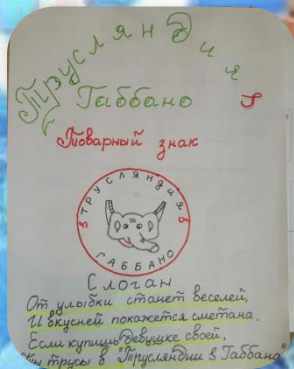 Трусляндия
Габбано
Товарный знак
ТРУСЛЯНДИЯ
ГАББАНО
Слоган
От улыбки станет веселей,
И вкусней покажется сметана.
Если купишь девушке своей,
трусы в "Трусляндии & Габбано"